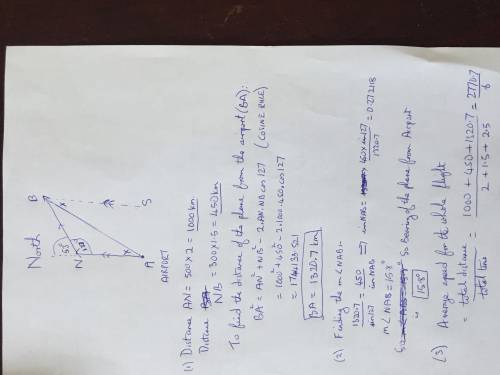 North
B
53°
N
127
S
A
AIRPORT
(1) Distance AN = 500 × 2 = 1000 km
Distance NB = 300 × 1.5 = 450 km
To find the distance of the plane from the airport (BA):
BA² = AN² + NB² - 2.AN.NB cos 127 (COSINE RULE)
= 1000² + 450² - 2.1000.450.cos127
BA = 1320.7 km
(2) Finding the m∠NAB:-
1320.7/sin127 = 450/sinNAB ⇒ sinNAB = 450 × sin127/1320.7 = 0.272118
m∠NAB = 15.8°
So Bearing of the plane from Airport
is 15.8°
(3) Average speed for the whole flight
= total distance/total time = 1000 + 450 + 1320.7/2 + 1.5 + 2.5 = 2770.7/6